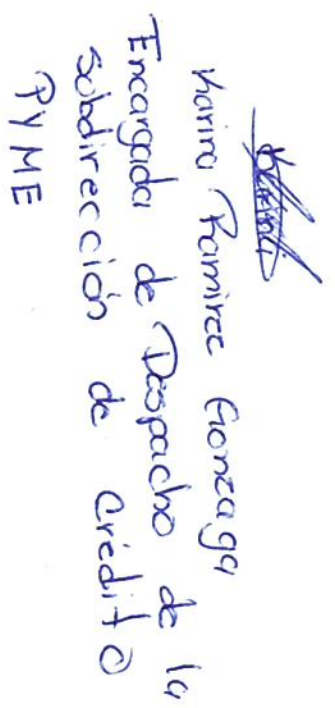 Karina Ramirez Gonzaga
Encargada de Despacho de la
Subdirección de Crédito
PYME